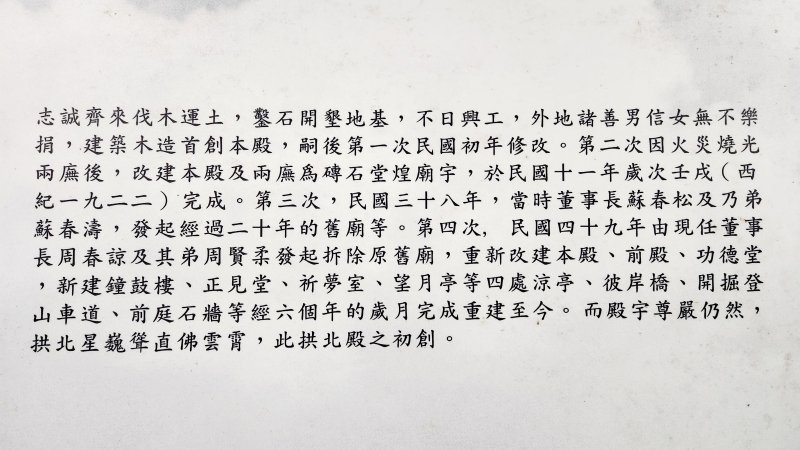 志誠齊來伐木運土，鑿石開墾地基，不日興工，外地諸善男信女無不樂
捐，建築木造首創本殿，嗣後第一次民國初年修改。第二次因火災燒光
兩廡後，改建本殿及兩廡爲磚石堂煌廟宇，於民國十一年歲次壬戌（西
紀一九二二）完成。第三次，民國三十八年，當時董事長蘇春松及乃弟
蘇春濤，發起經過二十年的舊廟等。第四次，民國四十九年由現任董事
長周春諒及其弟周賢柔發起拆除原舊廟，重新改建本殿、前殿、功德堂
，新建鐘鼓樓、正見堂、祈夢室、望月亭等四處涼亭、彼岸橋、開掘登
山車道、前庭石牆等經六個年的歲月完成重建至今。而殿宇尊嚴仍然，
拱北星巍聳直佛雲霄，此拱北殿之初創。